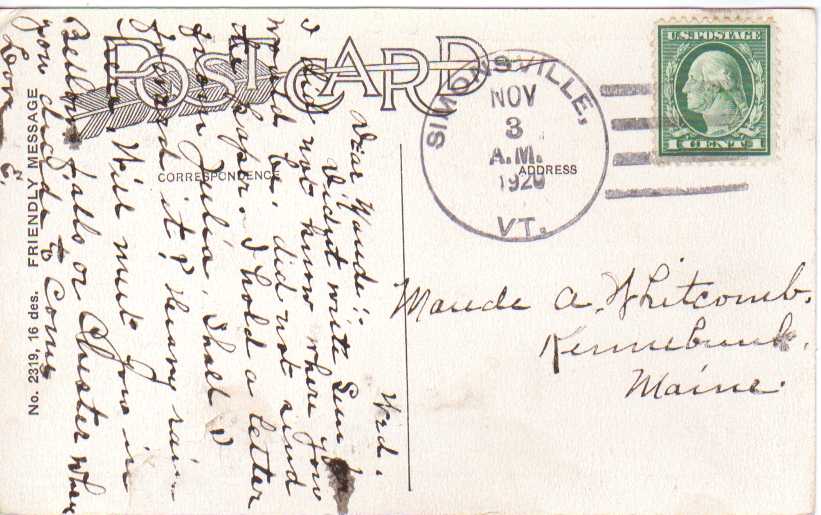 POST CARD
CORRESPONDENCE
ADDRESS
No. 2319, 16 des. FRIENDLY MESSAGE
SIMONSVILLE,
NOV
3
A.M.
1920
VT.
U.S. POSTAGE
1 CENT 1
Wed.
Dear Maude:-
Didnt write Sun for
I did not know where you
would be, did not send
the paper. I hold a letter
from Julia, Shall I
forward it? Heavy rain
here. Will meet you in
Bellows falls or Chester when
you decide to come
Love
Maude A. Whitcomb.
Kennebunk.
Maine.